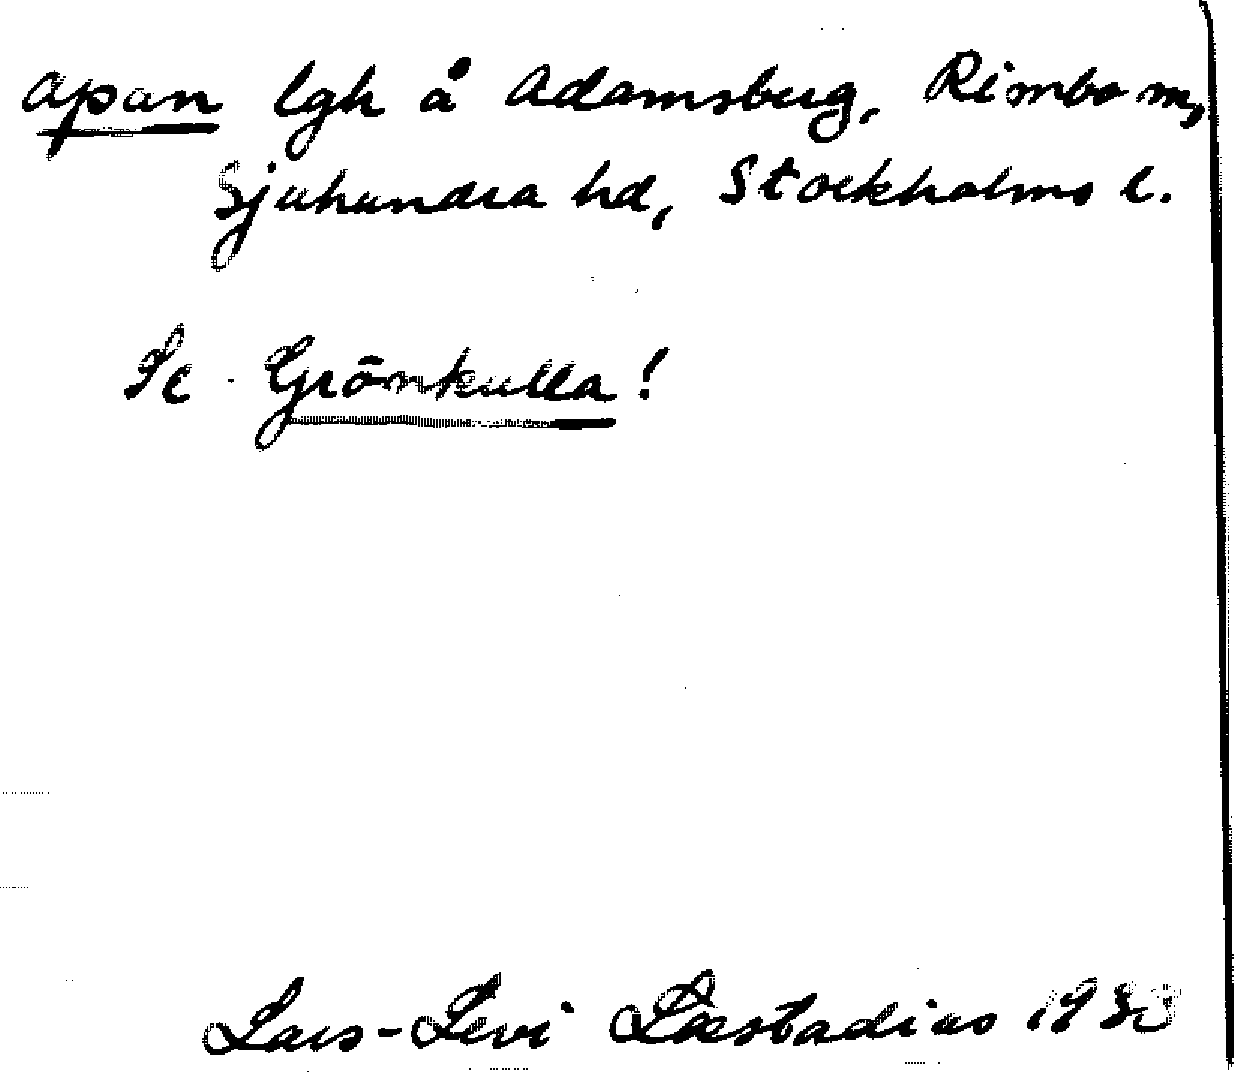 Apan lgh å Adamsberg, Rimbo sn,
Sjuhundra hd, Stockholms l.
Se Grönkulla!
Lars-Levi Læstadius